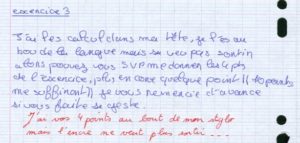 exercice 3
J'ai les calcul dans ma tête, je l'ai au
bou de la langue mais sa veu pas sortir
alors pouvez vous SVP me donner les 4 pts
de l'exercice, plus encore quelque point (( 10 points
me suffiront)) je vous remercie d'avance
si vous faite se geste.
J'ai vos 4 points au bout de mon stylo
mais l'encre ne veut plus sortir ...